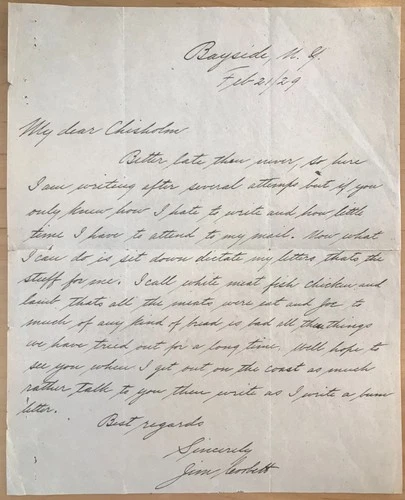 Bayside, N. Y.
Feb 21/29
My dear Chisholm
Better late than never, so here
I am writing after several attemps but if you
only knew how I hate to write and how little
time I have to attend to my mail. Now what
I can do is set down dictate my letters, thats, the
stuff for me. I call white meat fish chicken and
lamb thats all the meats were eat and Joe to
much of any kind of bread is bad all the things
we have tried out for a long time. Well hope to
see you when I get out on the coast as much
rather talk to you then write as I write a bum
letter.
Best regards
Sincerely
Jim Corbett